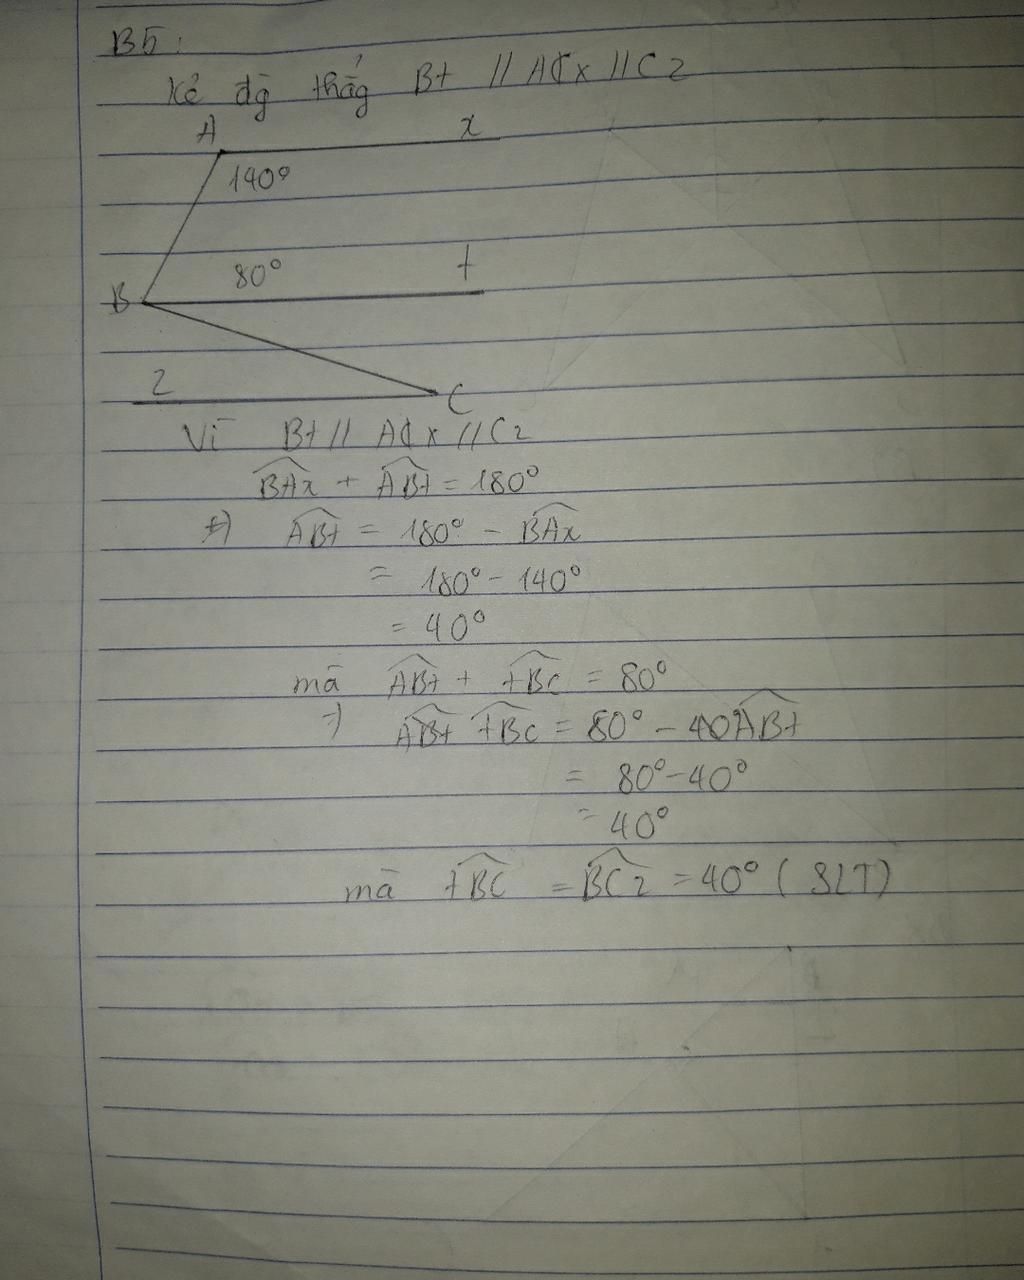 B5:
Kẻ đg̀ thẳg Bt // Ax // Cz
A x
140°
80° t
B
z
C
Vì Bt // Ax // Cz
BAx + ABt = 180°
=) ABt = 180° - BAx
= 180° - 140°
= 40°
mà ABt + tBC = 80°
=) tBC = 80° - ABt
= 80° - 40°
= 40°
mà tBC = BCz = 40° (SLT)